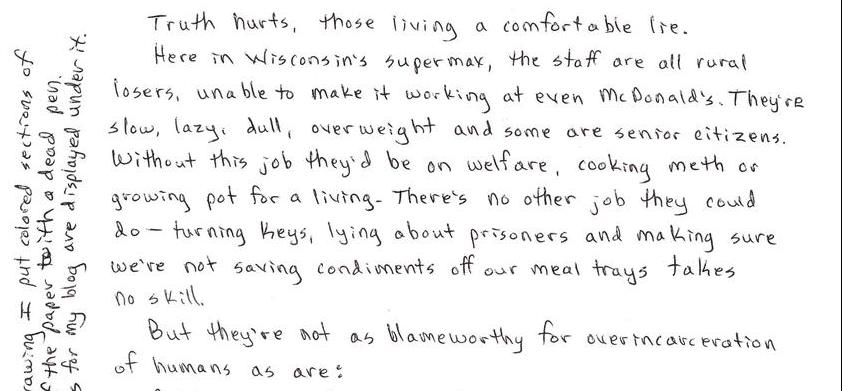 Truth hurts, those living a comfortable lie.
Here in Wisconsin's supermax, the staff are all rural
losers, unable to make it working at even McDonald's. They're
slow, lazy, dull, overweight and some are senior citizens.
Without this job they'd be on welfare, cooking meth or
growing pot for a living. There's no other job they could
do - turning keys, lying about prisoners and making sure
we're not saving condiments off our meal trays takes
no skill.
But they're not as blameworthy for overincarceration
of humans as are:
I put colored sections of
the paper with a dead pen.
for my blog are displayed under it.